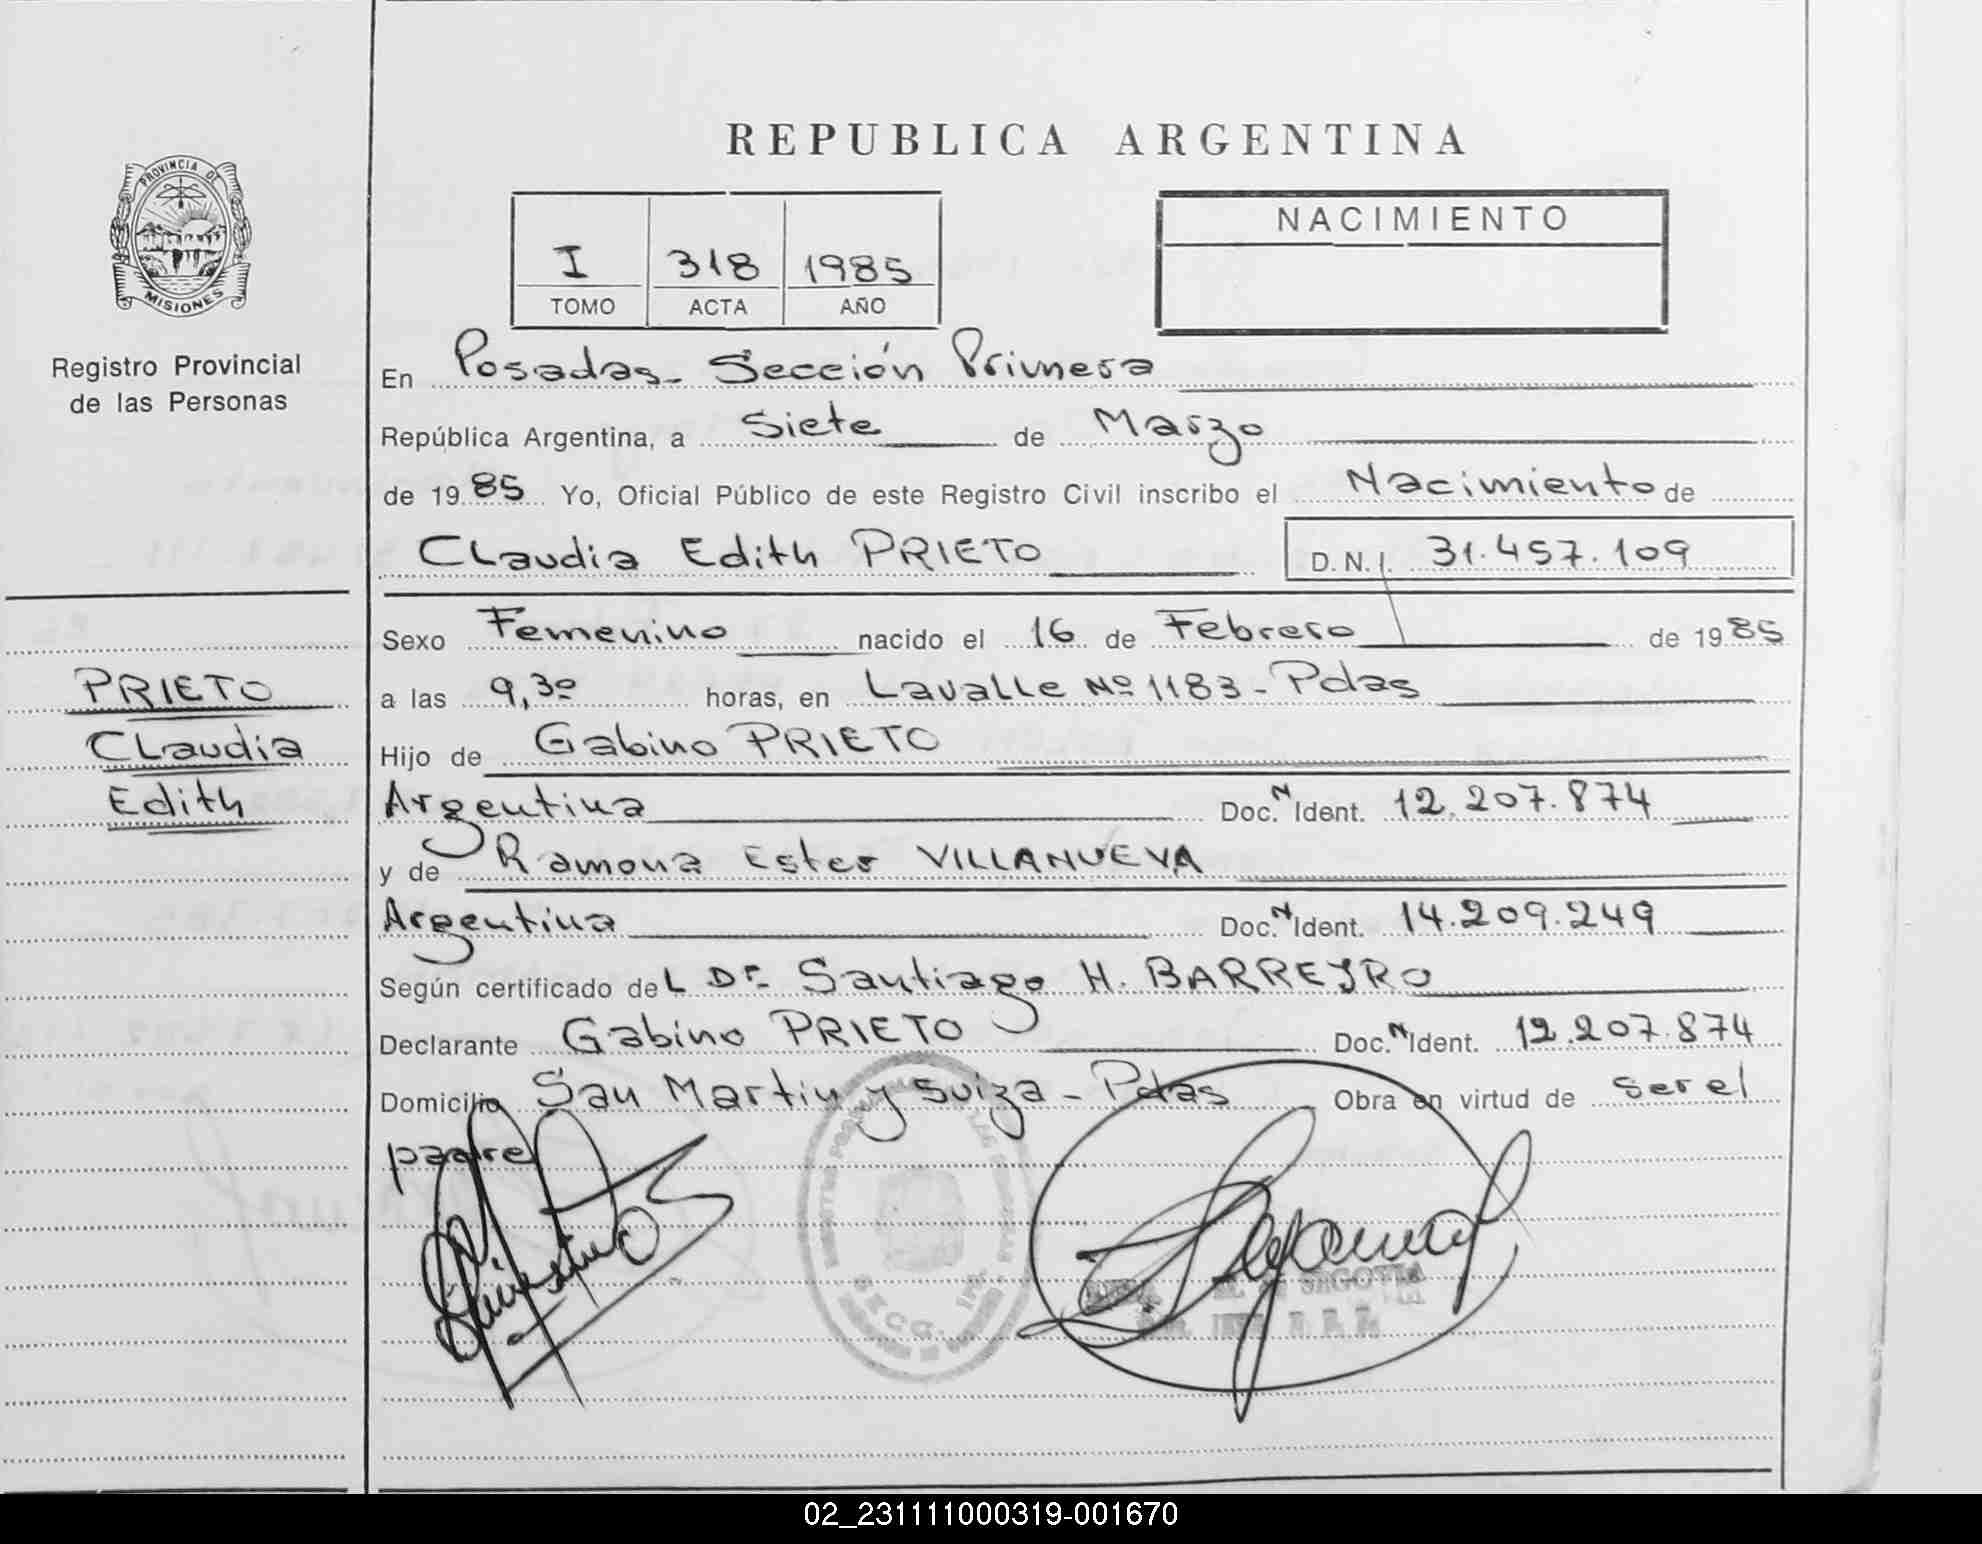 REPUBLICA ARGENTINA
PROVINCIA DE
MISIONES
Registro Provincial
de las Personas
I 318 1985
TOMO ACTA AÑO
NACIMIENTO
En Posadas - Sección Primera
República Argentina, a Siete de Marzo
de 1985 Yo, Oficial Público de este Registro Civil inscribo el Nacimiento de
Claudia Edith PRIETO D.N.I. 31.457.109
Sexo Femenino nacido el 16 de Febrero de 1985
PRIETO
Claudia
Edith
a las 9,30 horas, en Lavalle Nº 1183 - Pdas
Hijo de Gabino PRIETO
Argentina Doc. N Ident. 12.207.874
y de Ramona Ester VILLANUEVA
Argentina Doc. N Ident. 14.209.249
Según certificado del Dr. Santiago H. BARREYRO
Declarante Gabino PRIETO Doc. N Ident. 12.207.874
Domicilio San Martin y Suiza - Pdas Obra en virtud de ser el
padre
SEGOVIA
02_231111000319-001670